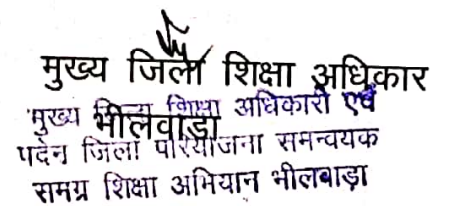 मुख्य जिला शिक्षा अधिकार
मुख्य जिला शिक्षा अधिकारी एवं
भीलवाड़ा
पदेन जिला परियोजना समन्वयक
समग्र शिक्षा अभियान भीलवाड़ा